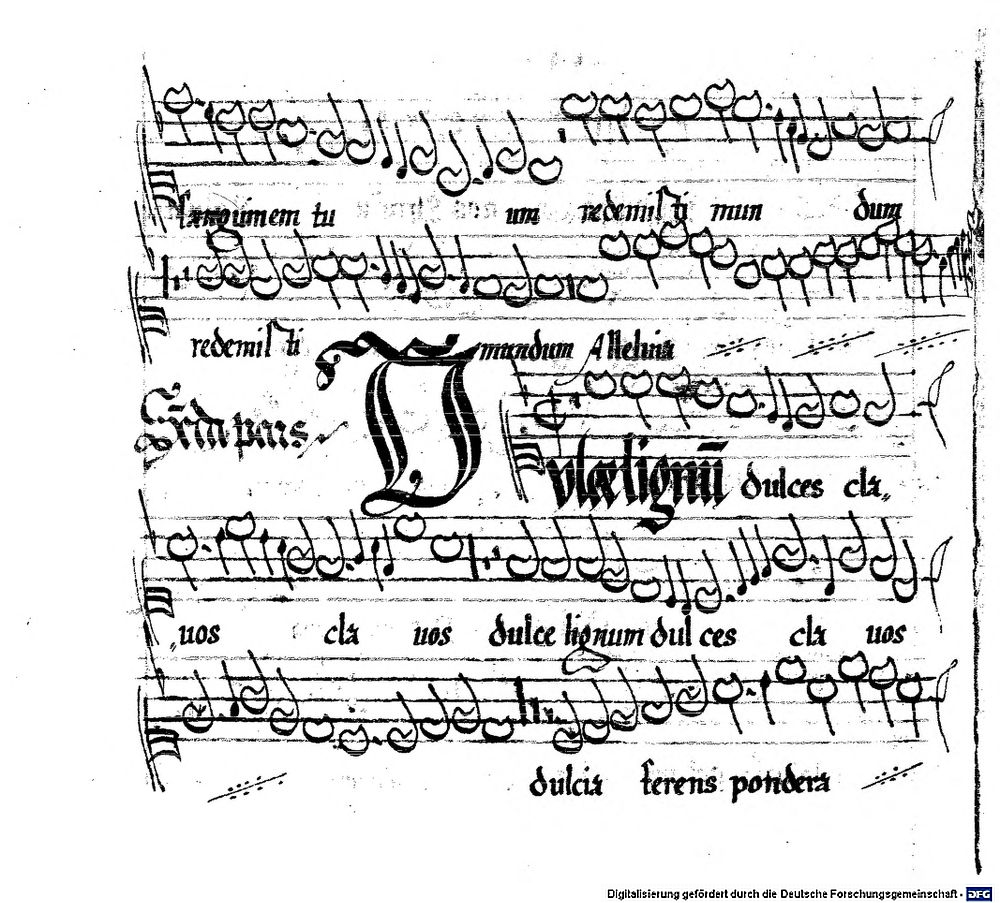 sanguinem tu um redemisti mun dum
redemisti mundum Alleluia
Scďa pars
Dulce lignū dulces cla„
„uos cla uos dulce lignum dul ces cla uos
dulcia ferens pondera
Digitalisierung gefördert durch die Deutsche Forschungsgemeinschaft - DFG